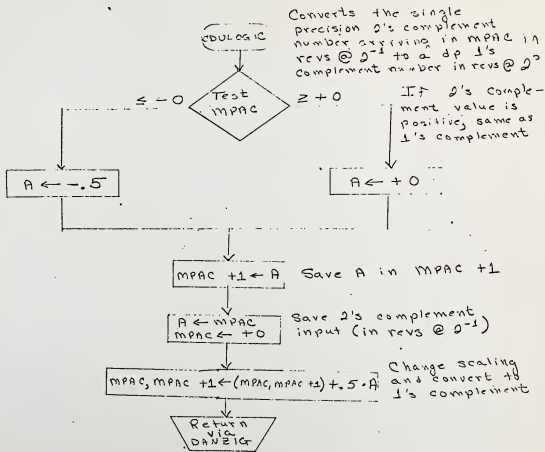 Converts the single
precision 2's complement
number arriving in MPAC in
revs @ 2⁻¹ to a dp 1's
complement number in revs @ 2⁰
CDULOGIC
Test
MPAC
≤ -0
≥ +0
If 2's comple-
ment value is
positive, same as
1's complement
A ← -.5
A ← +0
MPAC +1 ← A
Save A in MPAC +1
A ← MPAC
MPAC ← +0
Save 2's complement
input (in revs @ 2⁻¹)
MPAC, MPAC +1 ← (MPAC, MPAC +1) + .5·A
Change scaling
and convert to
1's complement
Return
via
DANZIG